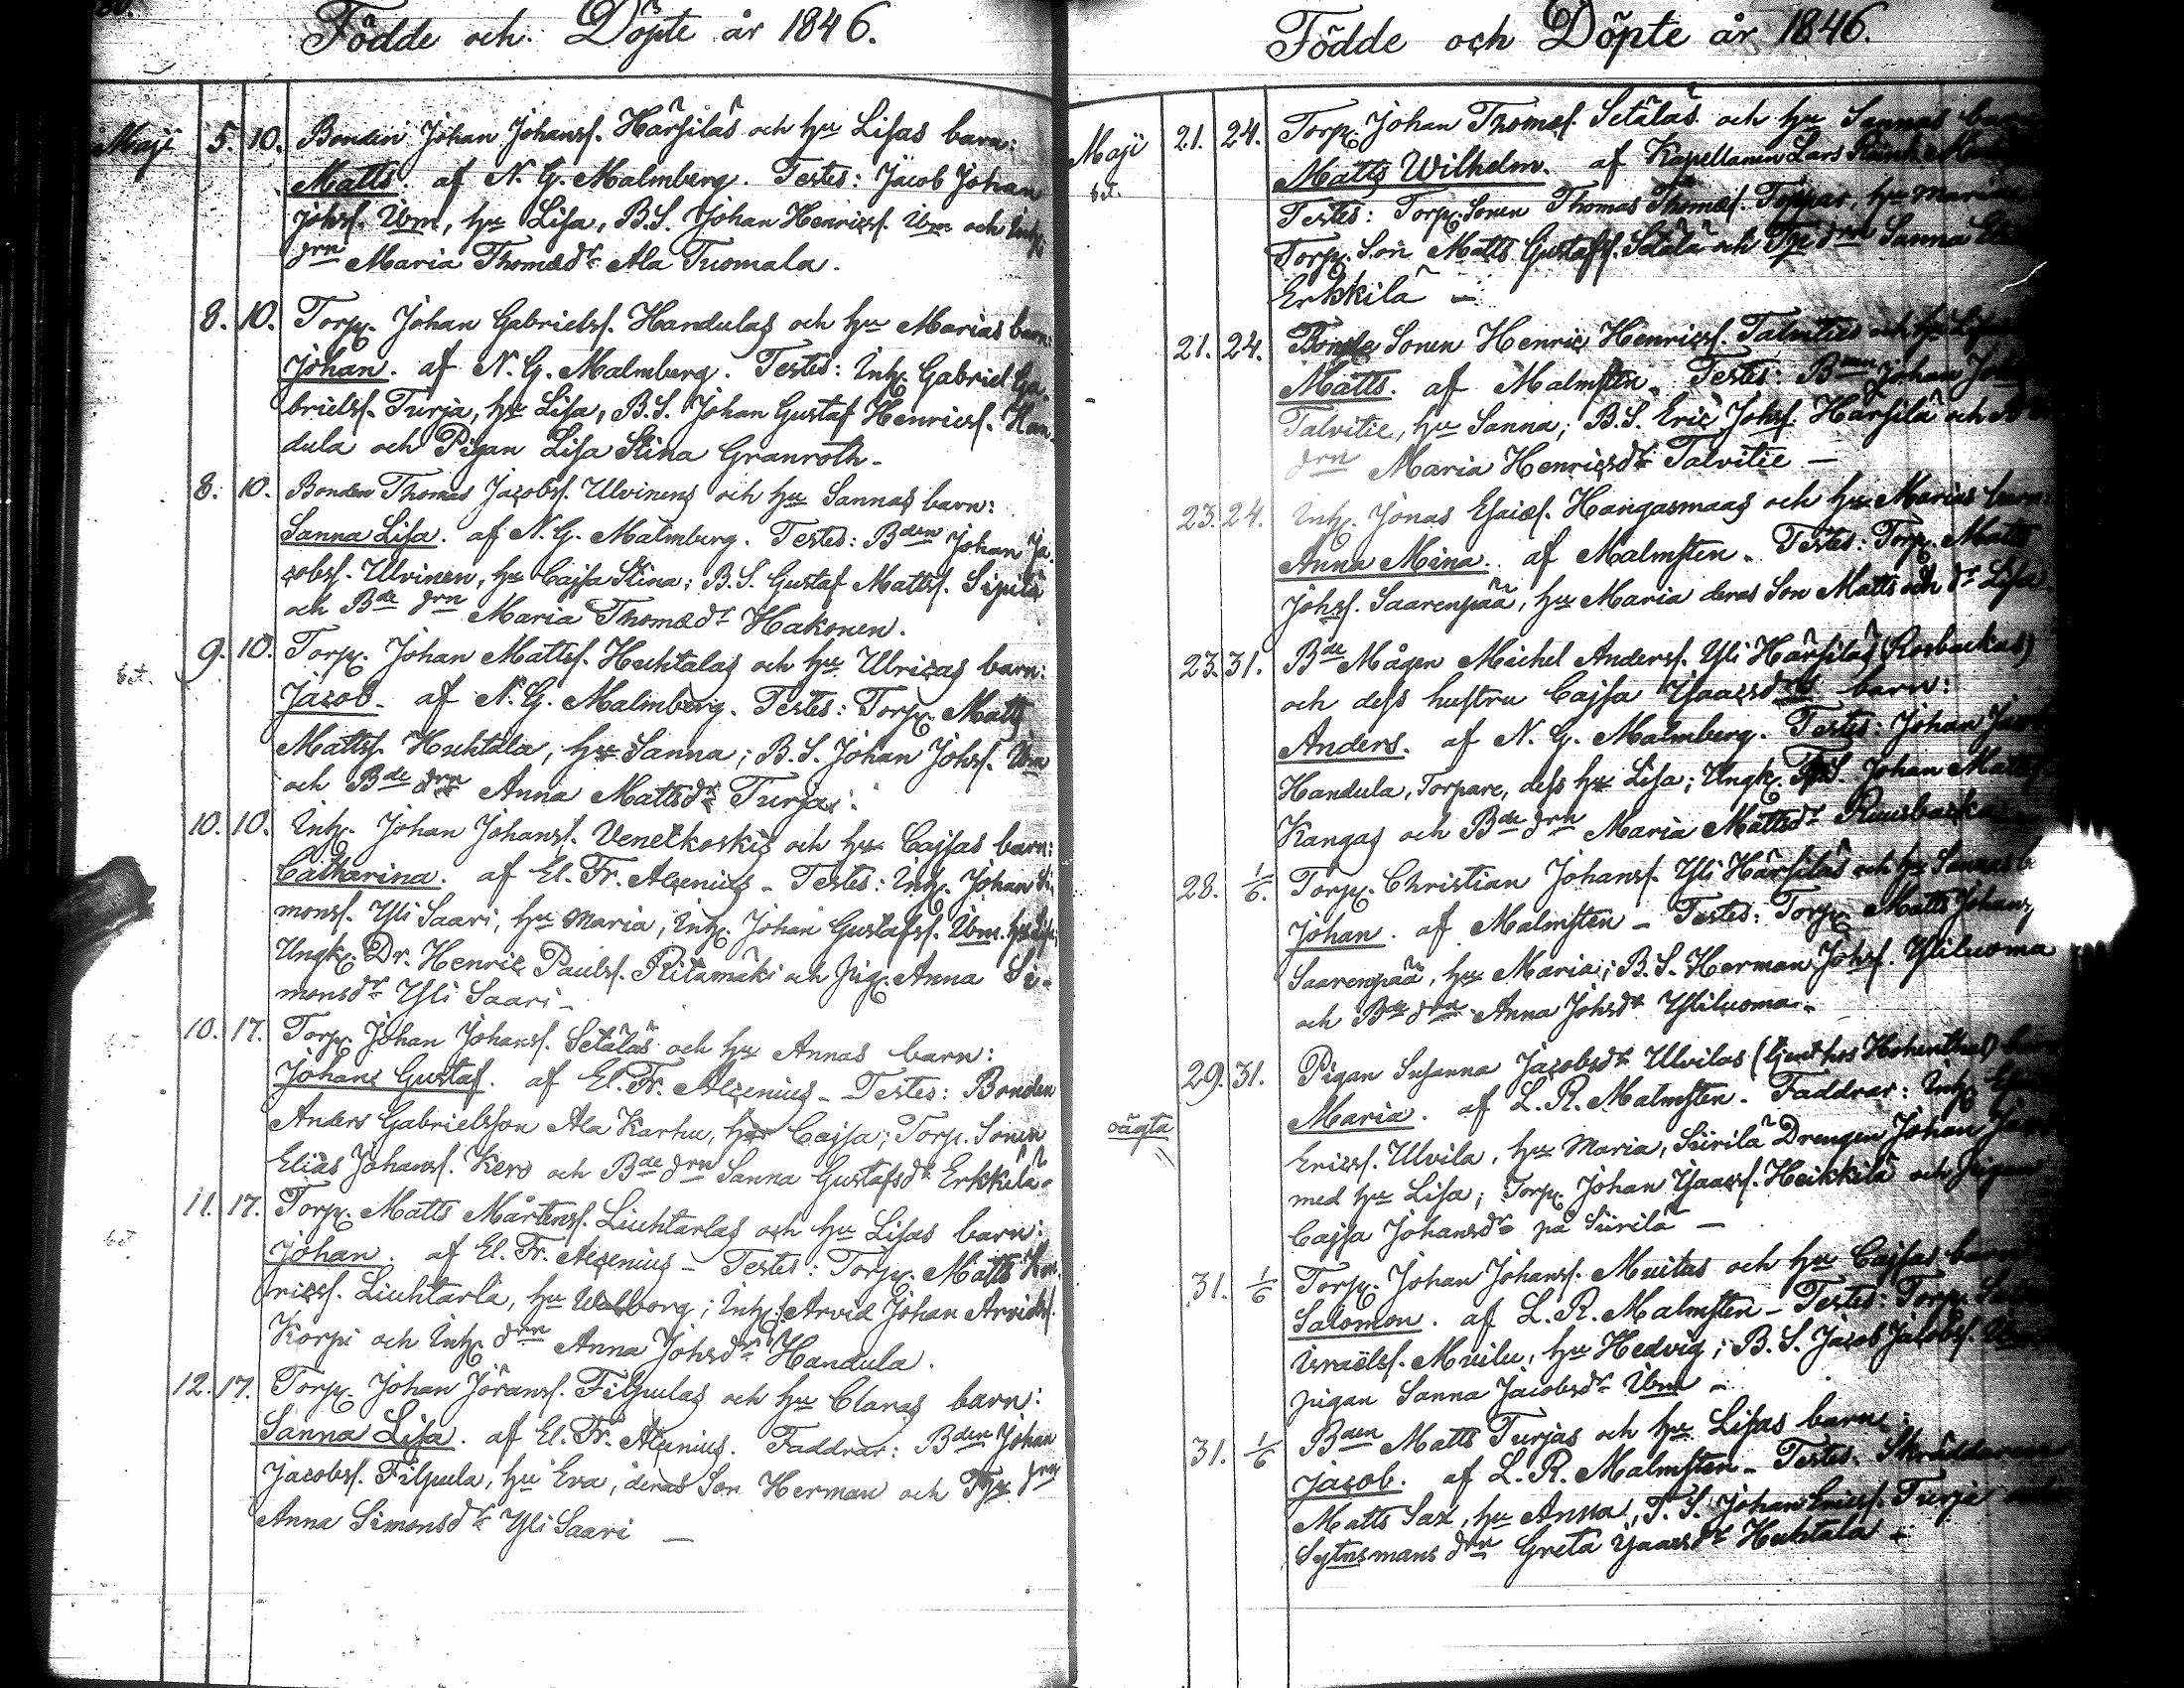 Födde och Döpte år 1846.
Maji 5. 10. Bonden Johan Johanss. Härsiläs och hu Lisas barn:
Matts. af N. G. Malmberg. Testes: Jacob Johan
Johss. Ibm, hu Lisa, B.S. Johan Henricss. Ibm och Inh.
drn Maria Thomædr Ala Tuomala.
8. 10. Torp. Johan Gabrielss. Handulas och hu Marias barn:
Johan. af N. G. Malmberg. Testes: Inh. Gabriel Ga-
brielss. Turja, hu Lisa, B.S. Johan Gustaf Henricss. Han-
dula och Pigan Lisa Stina Granroth.
8. 10. Bonden Thomas Jacobss. Ulvinens och hu Sannas barn:
Sanna Lisa. af N. G. Malmberg. Testes: Bden Johan Ja-
cobss. Ulvinen, hu Cajsa Stina; B.S. Gustaf Mattss. Sipilä
och Bde drn Maria Thomædr Hakonen.
bet. 9. 10. Torp. Johan Mattss. Huhtalas och hu Ulricas barn:
Jacob. af N. G. Malmberg. Testes: Torp. Matts
Mattss. Huhtala, hu Sanna; B.S. Johan Johss. Ibm
och Bde drn Anna Mattsdr Turja.
10. 10. Inh. Johan Johanss. Venetkoskis och hu Cajsas barn:
Catharina. af El. Fr. Alcenius - Testes: Inh. Johan Si-
monss. Yli Saari, hu Maria, Inh. Johan Gustafss. Ibm. hu Lisa;
Ungk. Dr. Henric Paulss. Ritamäki och Pig. Anna Si-
monsdr Yli Saari -
10. 17. Torp. Johan Johanss. Setäläs och hu Annas barn:
Johan Gustaf. af El. Fr. Alcenius - Testes: Bonden
Anders Gabrielsson Ala Karhu, hu Cajsa; Torp. Sonen
Elias Johanss. Kero och Bde drn Sanna Gustafsdr Erkkilä.
bet. 11. 17. Torp. Matts Mårtenss. Liuhtarlas och hu Lisas barn:
Johan. af El. Fr. Alcenius - Testes: Torp. Matts Hen-
ricss. Liuhtarla, hu Walborg; Inh. Arvid Johan Arvidss.
Korpi och Inh. drn Anna Johsdr Handula.
12. 17. Torp. Johan Jöranss. Filpulas och hu Claras barn:
Sanna Lisa. af El. Fr. Alcenius. Faddrar: Bden Johan
Jacobss. Filpula, hu Eva, deras Son Herman och Tp. drn
Anna Simonsdr Yli Saari -
Födde och Döpte år 1846.
Maji 21. 24. Torp. Johan Thomæs. Setäläs och hu Sannas barn
bet. Matts Wilhelm. af Kapellanen Lars Reinh.
Testes: Torp. Sonen Thomas Thomæs. Toppar, hu Maria
Torp. Son Matts Gustafss. Setälä och Tp drn Sanna
Erkkilä -
21. 24. Bonde Sonen Henric Henricss. Talvities och hu Lisas
Matts. af Malmsten. Testes: Bden Johan
Talvitie, hu Sanna; B.S. Eric Johss. Härsilä och
drn Maria Henricsdr Talvitie -
23. 24. Inh. Jonas Esaiæs. Hangasmaas och hu Marias barn:
Anna Mina. af Malmsten. Testes: Torp. Matts
Johss. Saarenpää, hu Maria deras Son Matts och dr Lisa
23. 31. Bde Mågen Michel Anderss. Yli Härsiläs (Rosbackas)
och dess hustru Cajsa Ysaacsdrs barn:
Anders. af N. G. Malmberg. Testes: Johan
Handula, Torpare, dess hu Lisa; Ungk. Johan Mattss.
Kangas och Bde drn Maria Mattsdr Ruusbacka
28. 1/6. Torp. Christian Johanss. Yli Härsiläs och hu Sannas b
Johan. af Malmsten - Testes: Torp. Matts Johans
Saarenpää, hu Maria; B.S. Herman Johss. Yliluoma
och Bde drn Anna Johsdr Yliluoma.
29. 31. Pigan Susanna Jacobsdr Ulvilas (tjent hos Hohenthal)
oägta Maria. af L. R. Malmsten. Faddrar: Inh.
Ericss. Ulvila, hu Maria, Siirilä Drengen Johan
med hu Lisa; Torp. Johan Ysaacss. Heikkilä och Pigan
Cajsa Johansdr på Siirilä -
31. 1/6 Torp. Johan Johanss. Muilus och hu Cajsas barn
Salomon. af L. R. Malmsten - Testes: Torp.
Israëlss. Muilu, hu Hedvig; B.S. Jacob Jacobss. Ibm
pigan Sanna Jacobsdr Ibm -
31. 1/6 Bden Matts Turjas och hu Lisas barn:
Jacob. af L. R. Malmsten - Testes: Skräddaren
Matts Sax, hu Anna, T.S. Johan Ericss. Turja
Sytnsmans drn Greta Ysaacsdr Huhtala -